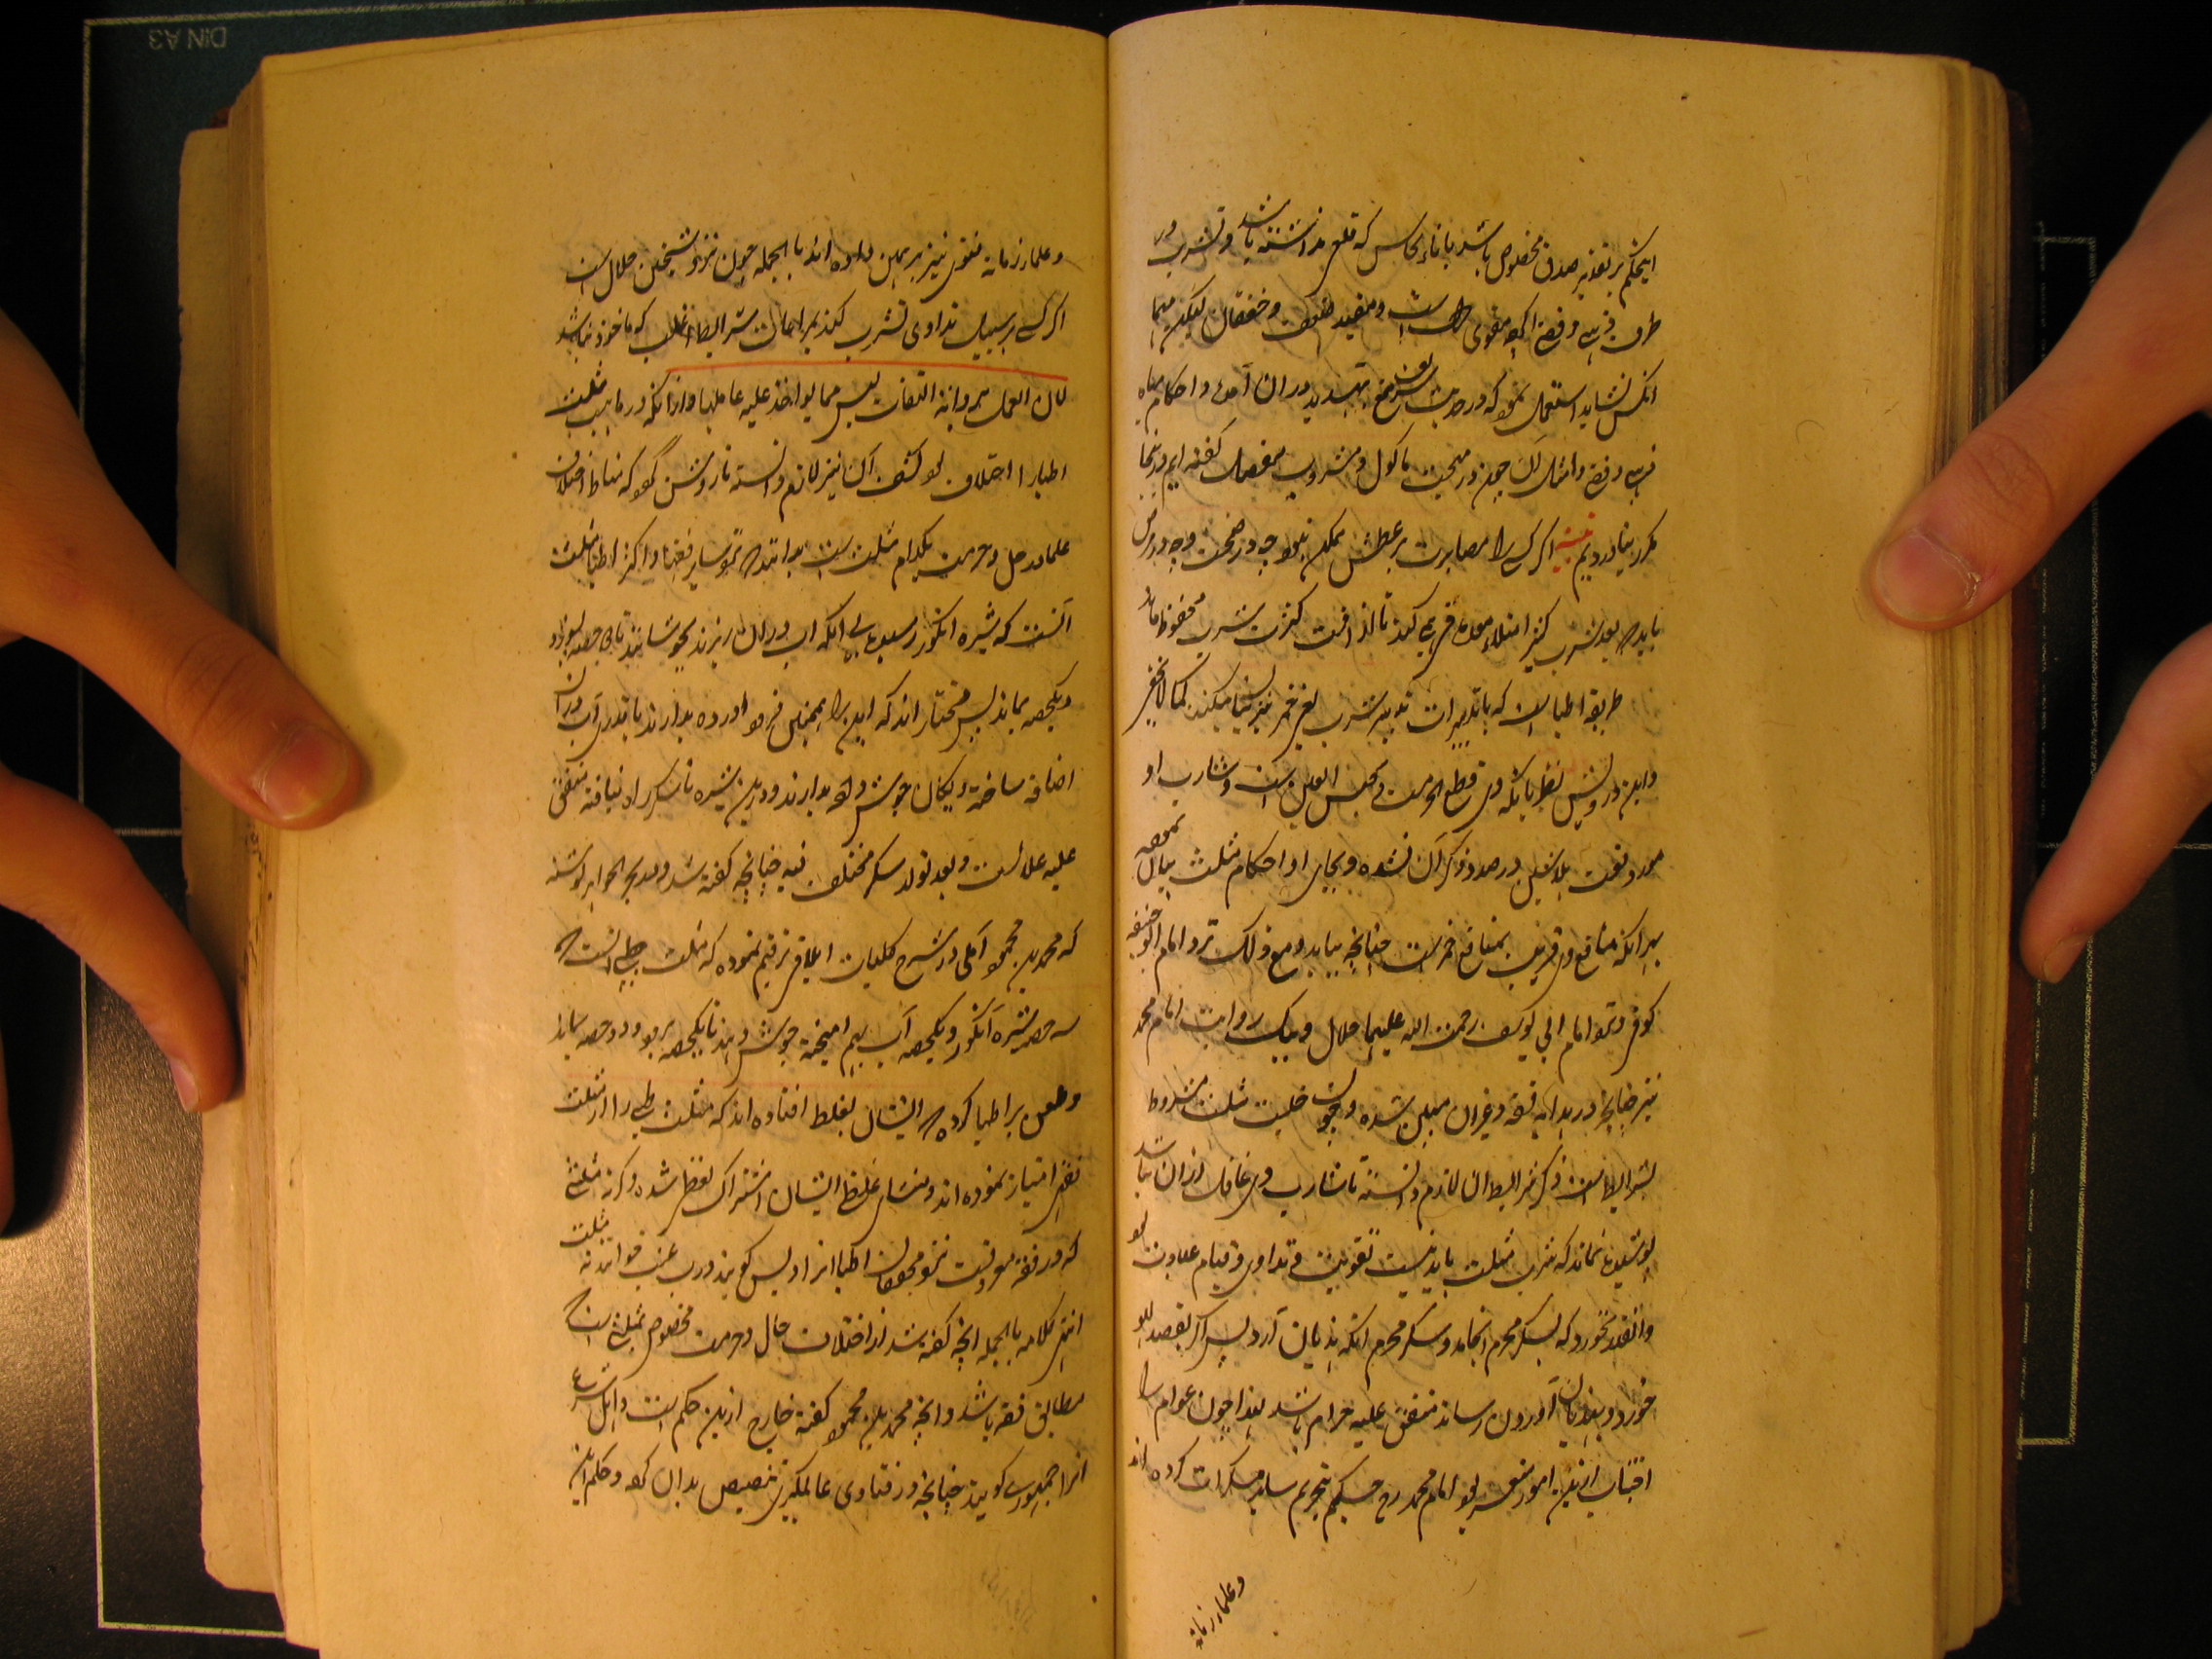 اینحکم بر تقدیر صدق مخصوص باشد باناء نحاس که قلعی نداشته باشد و تشرب در
ظرف و مقوی است و مفید ضعف و خفقان لیکن
انکس نشاید استعمال نمود که در حدیث تهدید در ان آمده و احکام میاه
و امثال ذلک چون در مبحث ماکول و مشروب مفصل گفته ایم در اینجا
مکرر نیاوردیم تنبیه اگر کسی را مصابرت بر عطش ممکن نبود چه در صحت و چه در مرض
باید که بعد شرب کثیر امتلاء معده قی کند تا از افت کثرت شرب محفوظ ماند
طریقه اطبا است که باتدبیرات تدبیر شرب یعنی خمر نیز بیان میکنند کما لا یخفی
و این درویش نظر بانکه وی قطع الحرمت و نجس العین است و شارب او
مورد لعنت در صدد ذکر آن نشده و بجای او احکام مثلث بیان نموده
بهر انکه منافع وی قریب بمنافع خمر است چنانچه بیاید و مع ذلک نزد امام ابو حنیفه
کوفی و نزد امام ابی یوسف رحمت الله علیهما حلال و بیک روایت امام محمد
نیز چنانچه در هدایه فقه و غیران مبین شده و چون حلیت مثلث مشروط
بشرایط است ذکر شرایط ان لازم دانسته تا شارب وی غافل ازان نباشد
پوشیده نماند که شرب مثلث باید به نیت تقویت و تداوی و قیام عبادت بود
و انقدر نخورد که بسکر محرم انجامد و سکر محرم انکه هذیان آرد پس اگر بقصد لهو
خورد و بهذیان آوردن رساند متفق علیه حرام باشد لهذا چون عوام را
اجتناب ازین امور متعسر بود امام محمد رح حکم بتحریم سایر مسکرات کرده اند
و علماء زمانه
و علماء زمانه فتوی نیز بر همین داده اند بالجمله چون نزد شیخین حلال است
اگر کسی بر سبیل تداوی تشرب کند بمراعات شرایط اغلب که ماخوذ نباشد
لان العمل بروایة الثقات لیس مما یواخذ علیه عاملها و ازانکه در ماهیت مثلث
اطبا را اختلاف بود کشف آن نیز لازم دانسته تا روشن گردد که مناط اختلاف
علما در حل و حرمت بکدام مثلث است بدانند که نزد سایر فقها و اکثر اطبا مثلث
آنست که شیره انگور رسیده بی انکه اب دران ریزند بجوشانند تا دو حصه بسوزد
و یکحصه بماند پس مختار اند که این را همچنین فرود اورده بدارند یا قدری آب دران
اضافه ساخته و یکان جوش داده بدارند و درین شیره تا سکر راه نیافته متفق
علیه علما است و بعد تولد سکر مختلف فیه چنانچه گفته شد و در بحر الجواهر نوشته
که محمد بن محمود آملی در شرح کلیات ایلاقی ترقیم نموده که مثلث طبی است که
سه حصه شیره انگور و یکحصه آب بهم امیخته جوش دهند تا یکحصه برود و دو حصه بماند
و طعن بر اطبا کرده که ایشان بغلط افتاده اند که مثلث طبی را از مثلث
فقهی امتیاز ننموده اند و منشای غلط ایشان اشتراک لفظی شده وگرنه مثلثی
که در فقه معروفست نزد محققان اطبا انرا دبس گویند و رب عنب خوانند نه مثلث
انتهی کلامه بالجمله انچه گفته شد از اختلاف حال و حرمت مخصوص بمثلثی است که
مطابق فقه باشد و انچه محمد بن محمود گفته خارج ازین حکم است و اهل شرع
انرا جمهوری گویند چنانچه در فتاوی عالمگیری تنصیص بدان کرده و حکم این